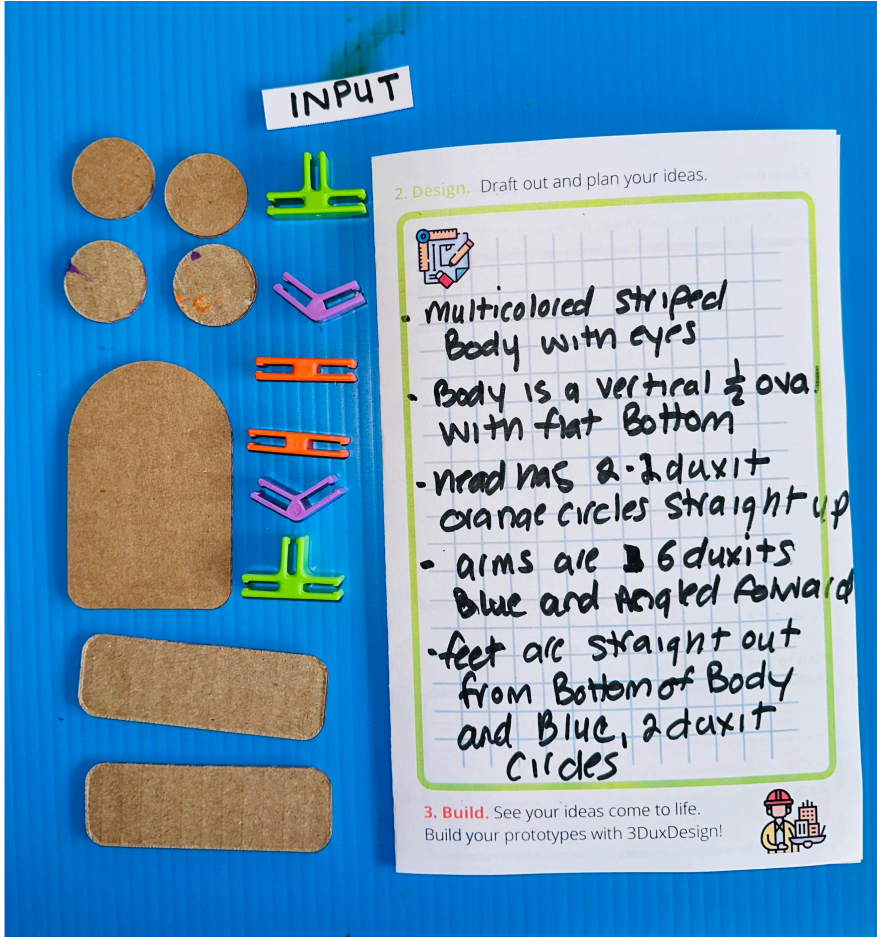 INPUT
2. Design. Draft out and plan your ideas.
• Multicolored striped
Body with eyes
• Body is a vertical ½ ova
with flat Bottom
• head has 2-2 duxit
orange circles straight up
• arms are 6 duxits
Blue and Angled forward
• feet are straight out
from Bottom of Body
and Blue, 2 duxit
circles
3. Build. See your ideas come to life.
Build your prototypes with 3DuxDesign!